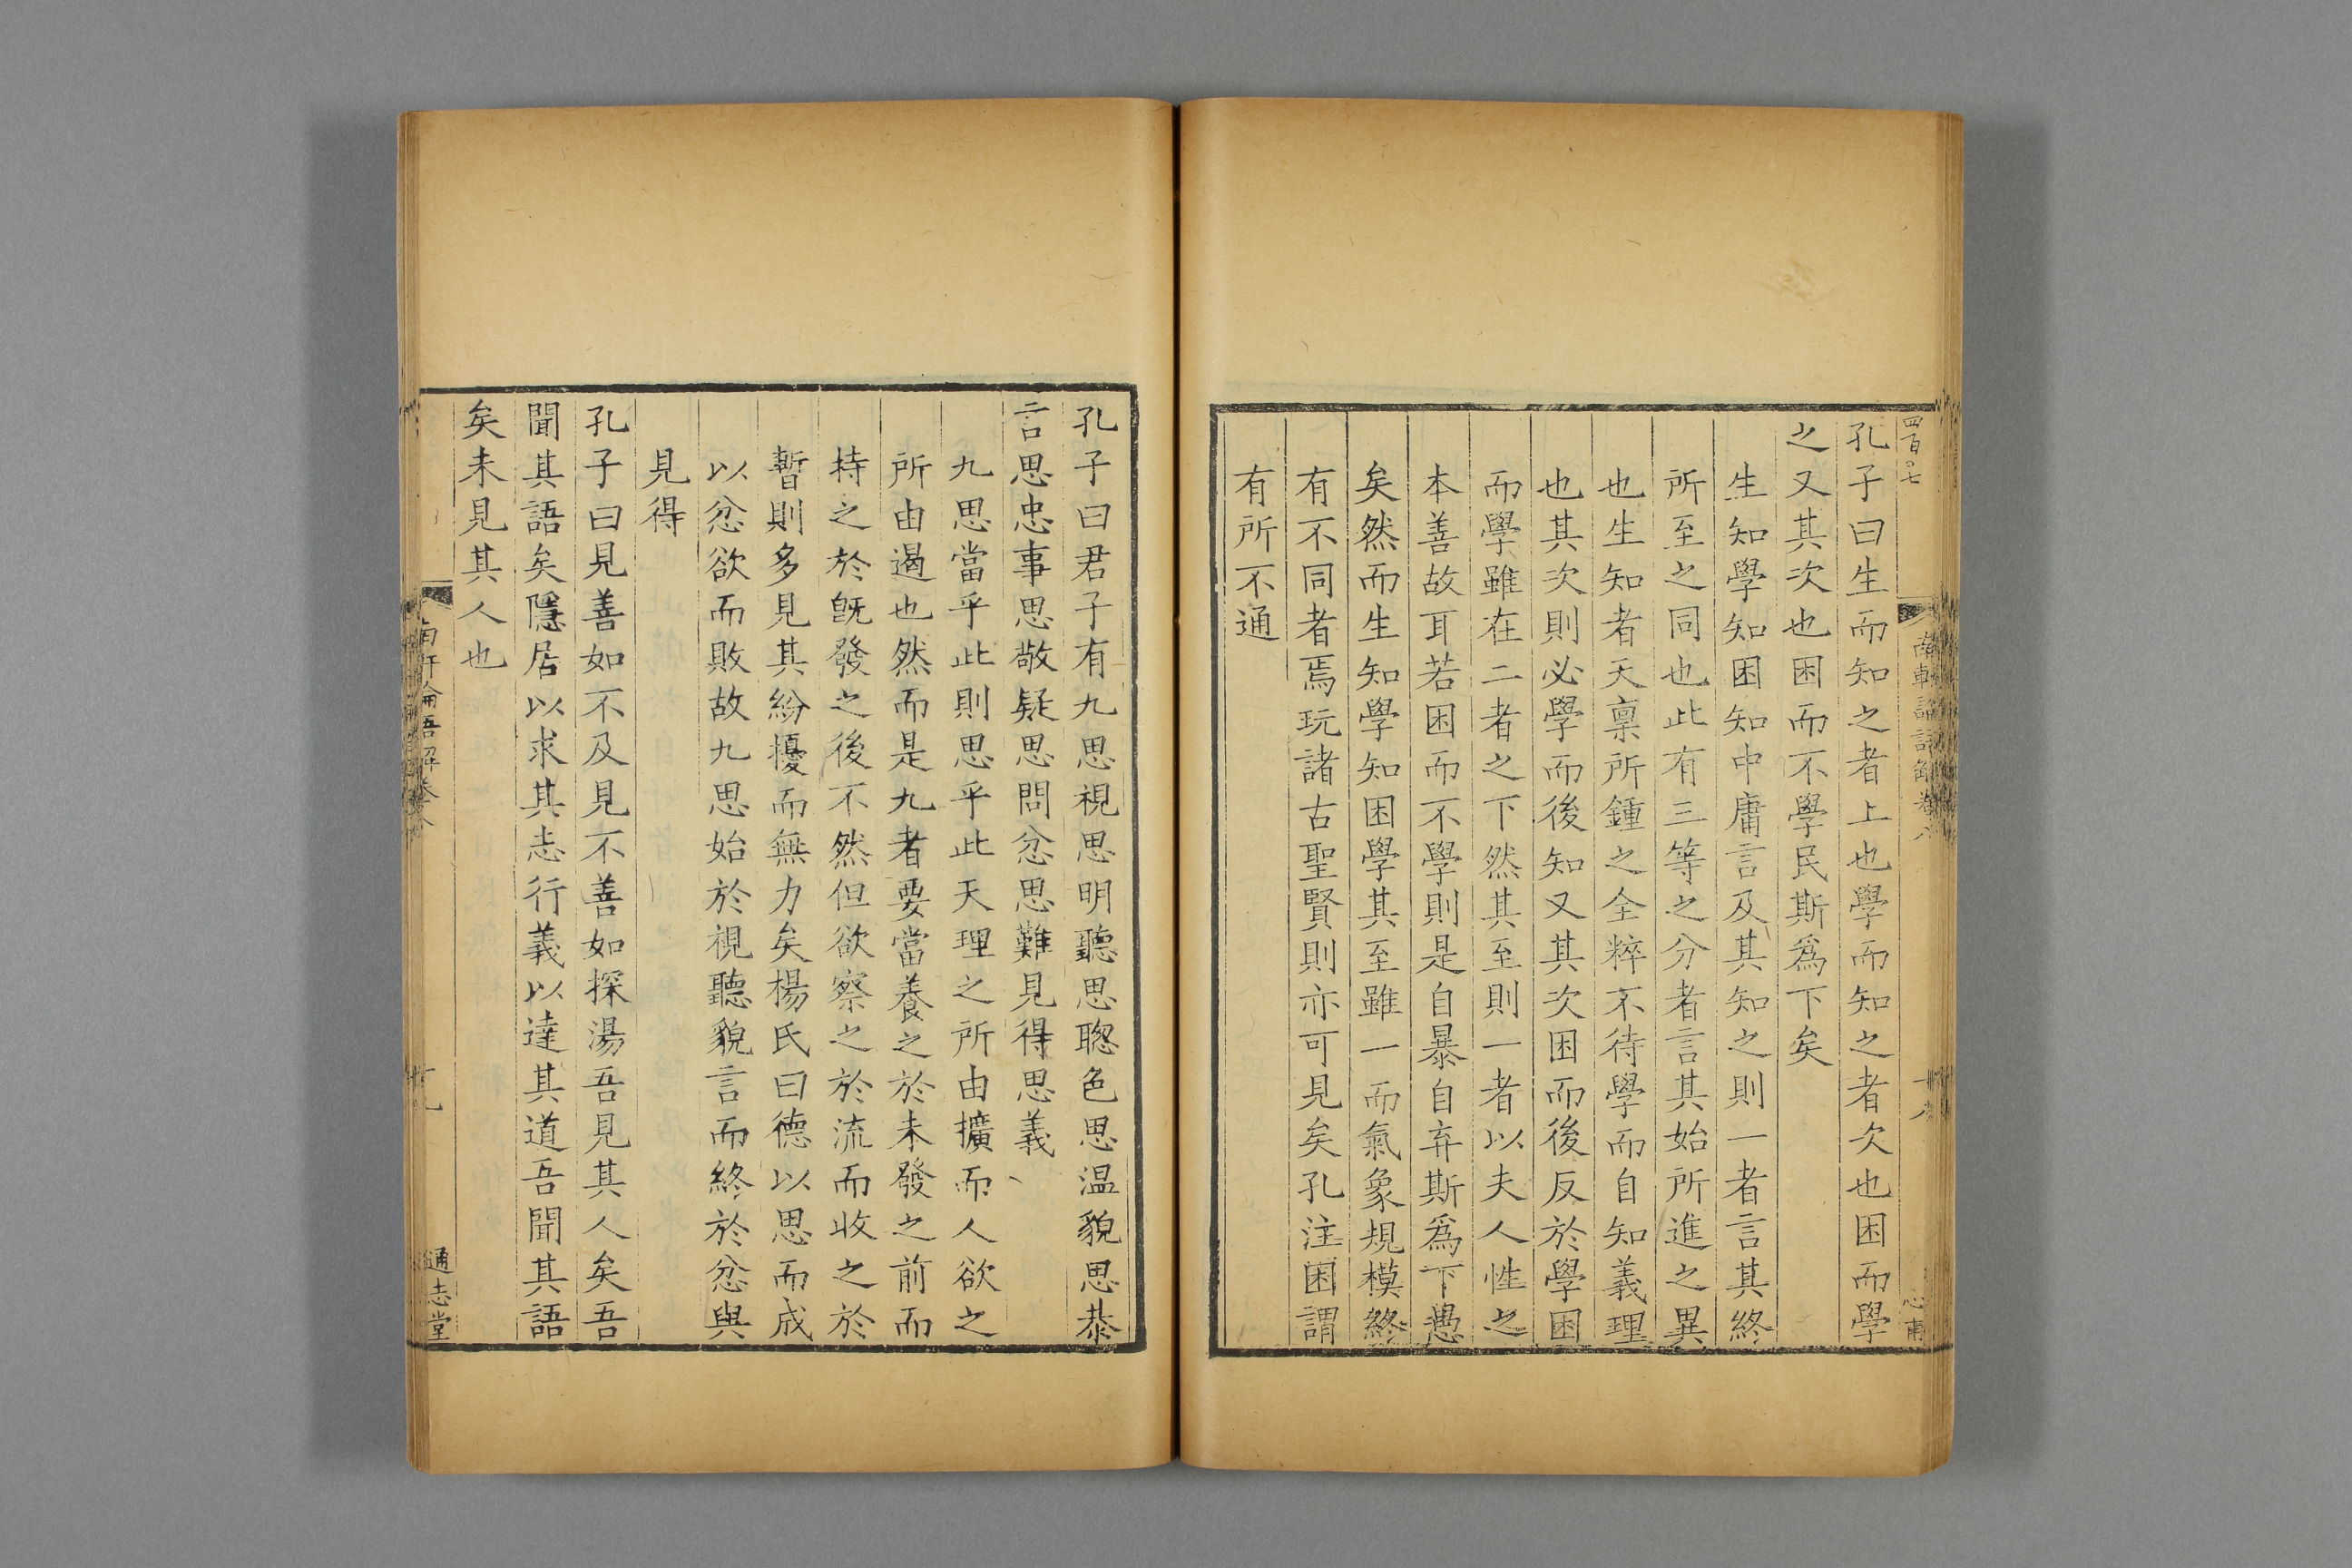 四百○七
南軒論語解卷八
十八
心甫
孔子曰生而知之者上也學而知之者次也困而學
之又其次也困而不學民斯爲下矣
生知學知困知中庸言及其知之則一者言其終
所至之同也此有三等之分者言其始所進之異
也生知者天稟所鍾之全粹不待學而自知義理
也其次則必學而後知又其次困而後反於學困
而學雖在二者之下然其至則一者以夫人性之
本善故耳若困而不學則是自暴自弃斯爲下愚
矣然而生知學知困學其至雖一而氣象規模終
有不同者焉玩諸古聖賢則亦可見矣孔注困謂
有所不通
孔子曰君子有九思視思明聽思聰色思温貌思恭
言思忠事思敬疑思問忿思難見得思義
九思當乎此則思乎此天理之所由擴而人欲之
所由遏也然而是九者要當養之於未發之前而
持之於旣發之後不然但欲察之於流而收之於
暫則多見其紛擾而無力矣楊氏曰德以思而成
以忿欲而敗故九思始於視聽貌言而終於忿與
見得
孔子曰見善如不及見不善如探湯吾見其人矣吾
聞其語矣隱居以求其志行義以達其道吾聞其語
矣未見其人也
南軒論語解卷八
十九
通志堂